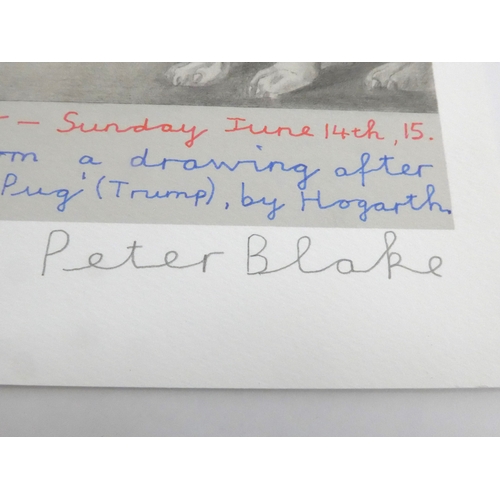 – Sunday June 14th, 15.
a drawing after
Pug' (Trump), by Hogarth.
Peter Blake